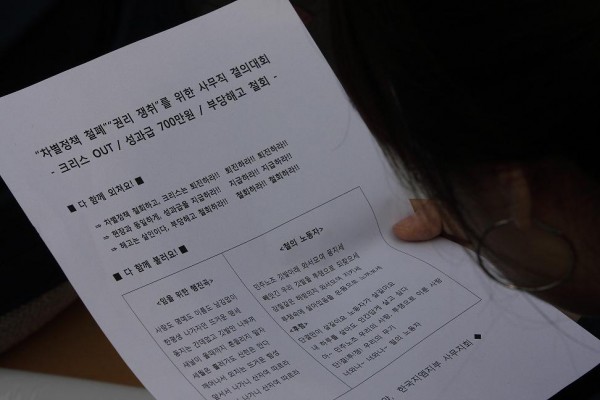 "차별정책 철폐""권리 쟁취"를 위한 사무직 결의대회
- 크리스 OUT / 성과급 700만원 / 부당해고 철회 -
■ 다 함께 외쳐요! ■
⇒ 차별정책 철회하고, 크리스는 퇴진하라!! 퇴진하라!! 퇴진하라!!
⇒ 현장과 동일하게, 성과급을 지급하라!! 지급하라!! 지급하라!!
⇒ 해고는 살인이다, 부당해고 철회하라!! 철회하라!! 철회하라!!
■ 다 함께 불러요! ■
<임을 위한 행진곡>
사랑도 명예도 이름도 남김없이
한평생 나가자던 뜨거운 맹세
동지는 간데없고 깃발만 나부껴
새날이 올때까지 흔들리지 말자
세월은 흘러가도 산천은 안다
깨어나서 외치는 뜨거운 함성
앞서서 나가니 산자여 따르라
앞서서 나가니 산자여 따르라
<철의 노동자>
민주노조 깃발아래 와서모여 뭉치세
빼앗긴 우리 피땀을 투쟁으로 되찾으세
<후렴>
내 하루를 살아도 인간답게 살고 싶다
아- 민주노조 우리의 사랑 투쟁으로 이룬 사랑
단결 투쟁 우리의 무기
너와나~ 너와나~ 철의 노동자
한국지엠지부 사무지회 ◆